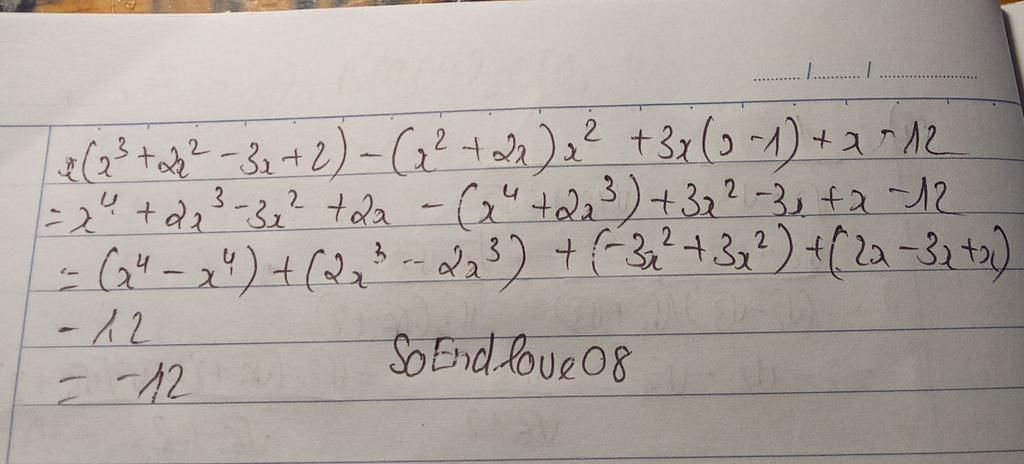 x(x³ + 2x² - 3x + 2) - (x² + 2x) x² + 3x(x - 1) + x - 12
= x⁴ + 2x³ - 3x² + 2x - (x⁴ + 2x³) + 3x² - 3x + x - 12
= (x⁴ - x⁴) + (2x³ - 2x³) + (-3x² + 3x²) + (2x - 3x + x)
- 12
= -12
SoEnd.love08